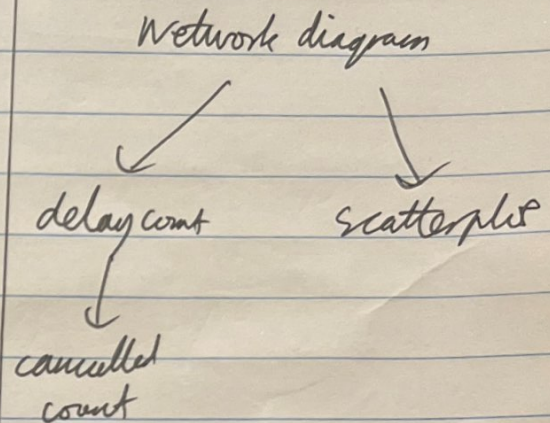 Network diagram
delay count scatterplot
cancelled
count